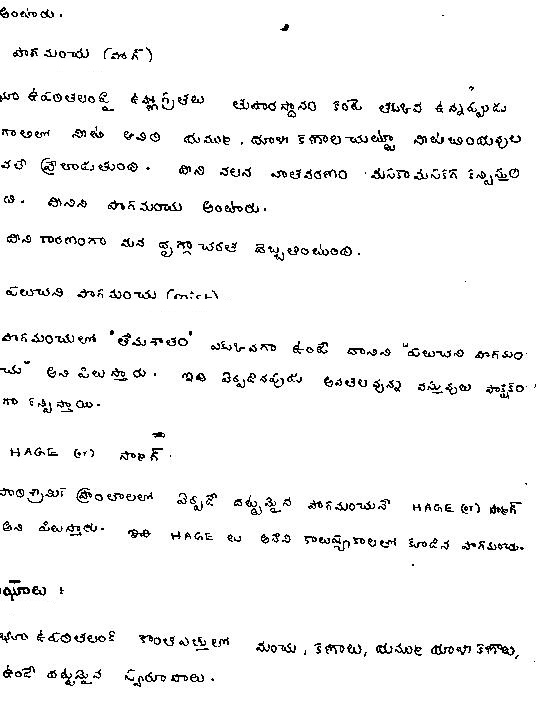 అంటారు.
పొగమంచు (ఫాగ్)
భూ ఉపరితలంపై ఉష్ణోగ్రతలు తుషారస్థానం కంటే తక్కువ ఉన్నప్పుడు
గాలిలో నీటి ఆవిరి ధూమ, ధూళి కణాల చుట్టూ నీటిబిందువుల
వలె వ్రేలాడుతుంది. దీని వలన వాతవరణం మసకమసకగా కన్పిస్తుం
ది. దీనిని పొగమంచు అంటారు.
దీని కారణంగా మన దృగ్గోచరత దెబ్బతింటుంది.
పలుచని పొగమంచు (mist)
పొగమంచులో "తేమశాతం" ఎక్కువగా ఉంటే దానిని "పలుచని పొగమం
చు" అని పిలుస్తారు. ఇది ఏర్పడినపుడు అవతలవున్న వస్తువులు పాక్షికం
గా కన్పిస్తాయి.
HAGE (or) స్మాగ్.
పారిశ్రామిక ప్రాంతాలలో ఏర్పడే దట్టమైన పొగమంచునే HAGE (or) స్మాగ్
అని పిలుస్తారు. ఇది HAGE లు అనేవి కాలుష్యకాలతో కూడిన పొగమంచు.
మేఘాలు :
భూ ఉపరితలంకి కొంతఎత్తులో మంచు, కణాలు, ధూమ ధూళి కణాలు,
ఉండే దట్టమైన స్వరూపాలు.